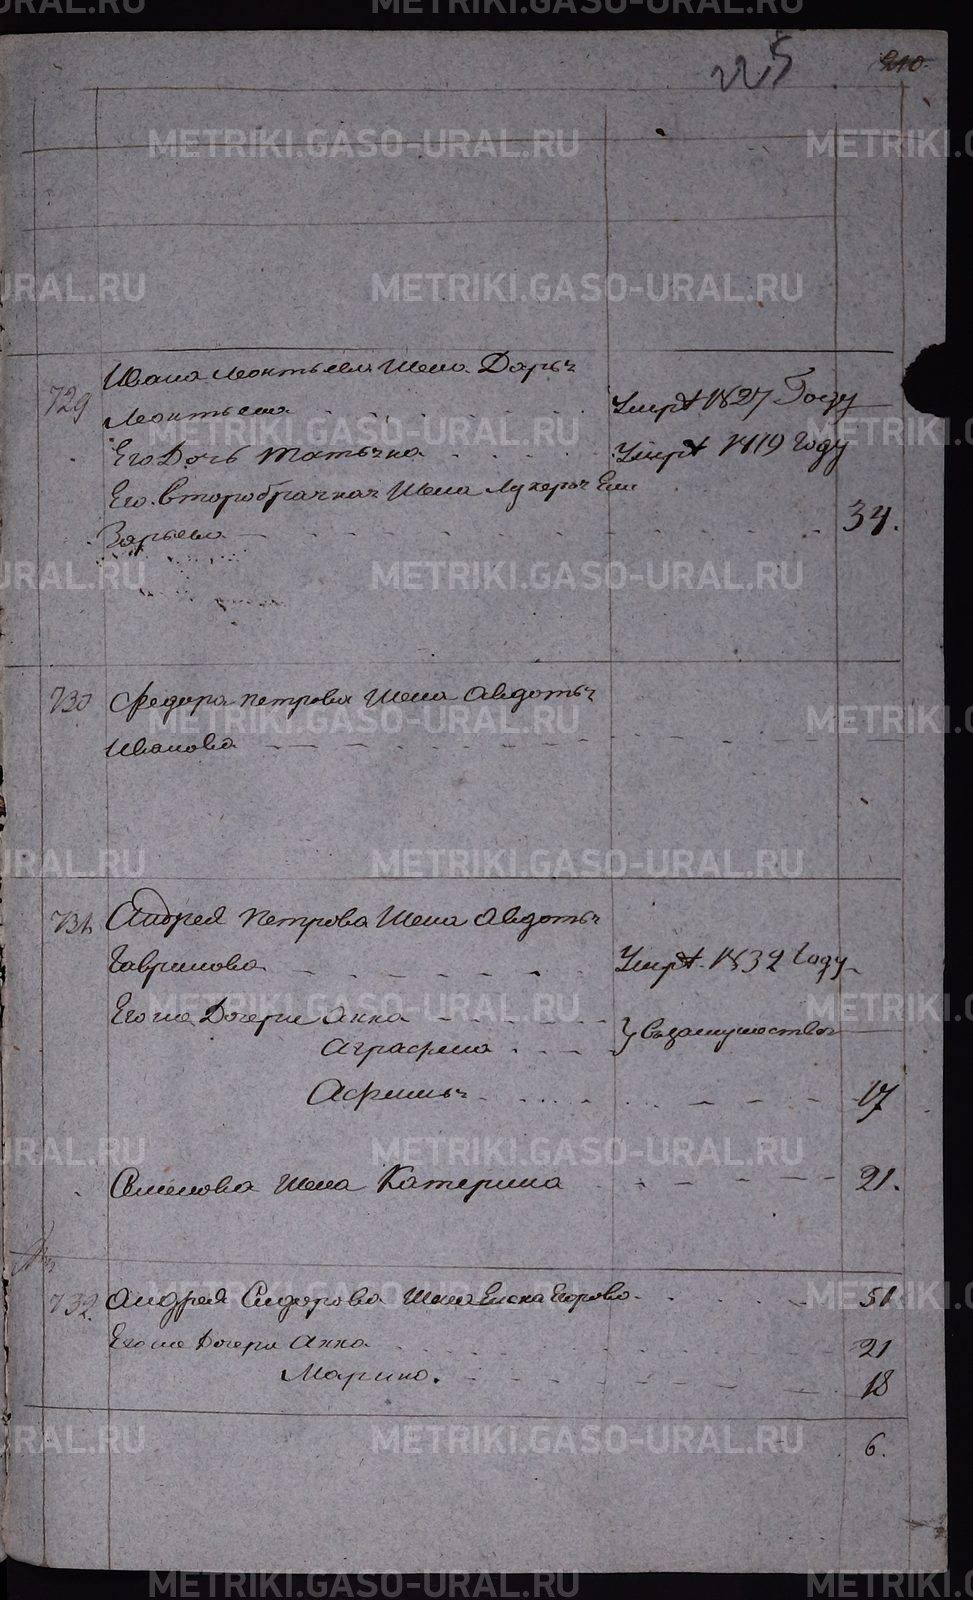 225
210.
729 Ивана Леонтьева Жена Дарья
Леонтьева Умер. 1827 Году
Его Дочь Татьяна Умер. 1819 Году
Его второбрачная Жена Лукерья Ели
Зарьева 34.
730 Федора Петрова Жена Авдотья
Иванова
731. Андрея Петрова Жена Авдотья
Гаврилова Умер. 1832 Году
Его же Дочери Анна
Аграфена У взамужество
Афимья 17
Семенова Жена Катерина 21.
732. Андрея Сидорова Жена Егорова 51
Его же Дочери Анна 21
Марина. 18
6.
METRIKI.GASO-URAL.RU